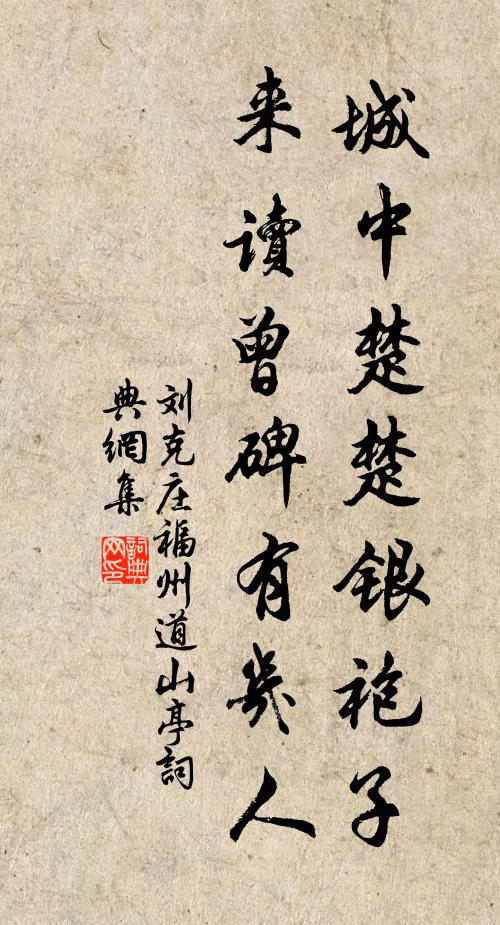 城中楚楚银袍子
来读曾碑有几人
刘克庄福州道山亭詞
典網集
詞典
网印